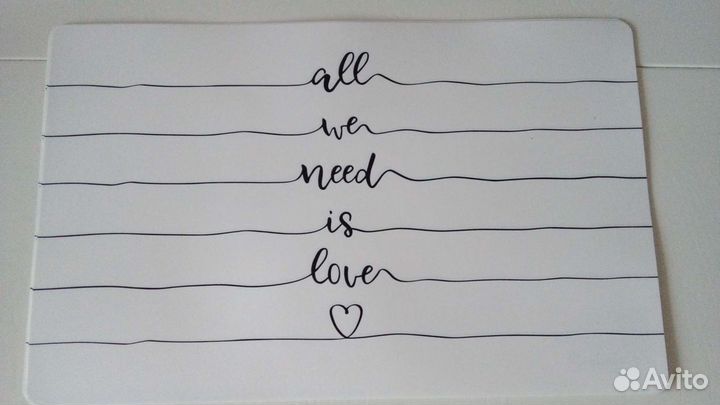 all
we
need
is
love
Avito